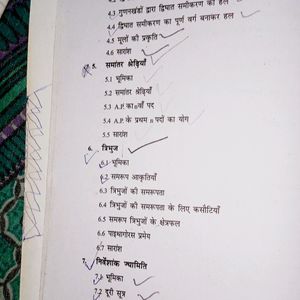 4.3 गुणनखंडों द्वारा द्विघात समीकरण का हल
4.4 द्विघात समीकरण का पूर्ण वर्ग बनाकर हल
4.5 मूलों की प्रकृति
4.6 सारांश
5. समांतर श्रेढ़ियाँ
5.1 भूमिका
5.2 समांतर श्रेढ़ियाँ
5.3 A.P. का nवाँ पद
5.4 A.P. के प्रथम n पदों का योग
5.5 सारांश
6. त्रिभुज
6.1 भूमिका
6.2 समरूप आकृतियाँ
6.3 त्रिभुजों की समरूपता
6.4 त्रिभुजों की समरूपता के लिए कसौटियाँ
6.5 समरूप त्रिभुजों के क्षेत्रफल
6.6 पाइथागोरस प्रमेय
6.7 सारांश
7. निर्देशांक ज्यामिति
7.1 भूमिका
7.2 दूरी सूत्र